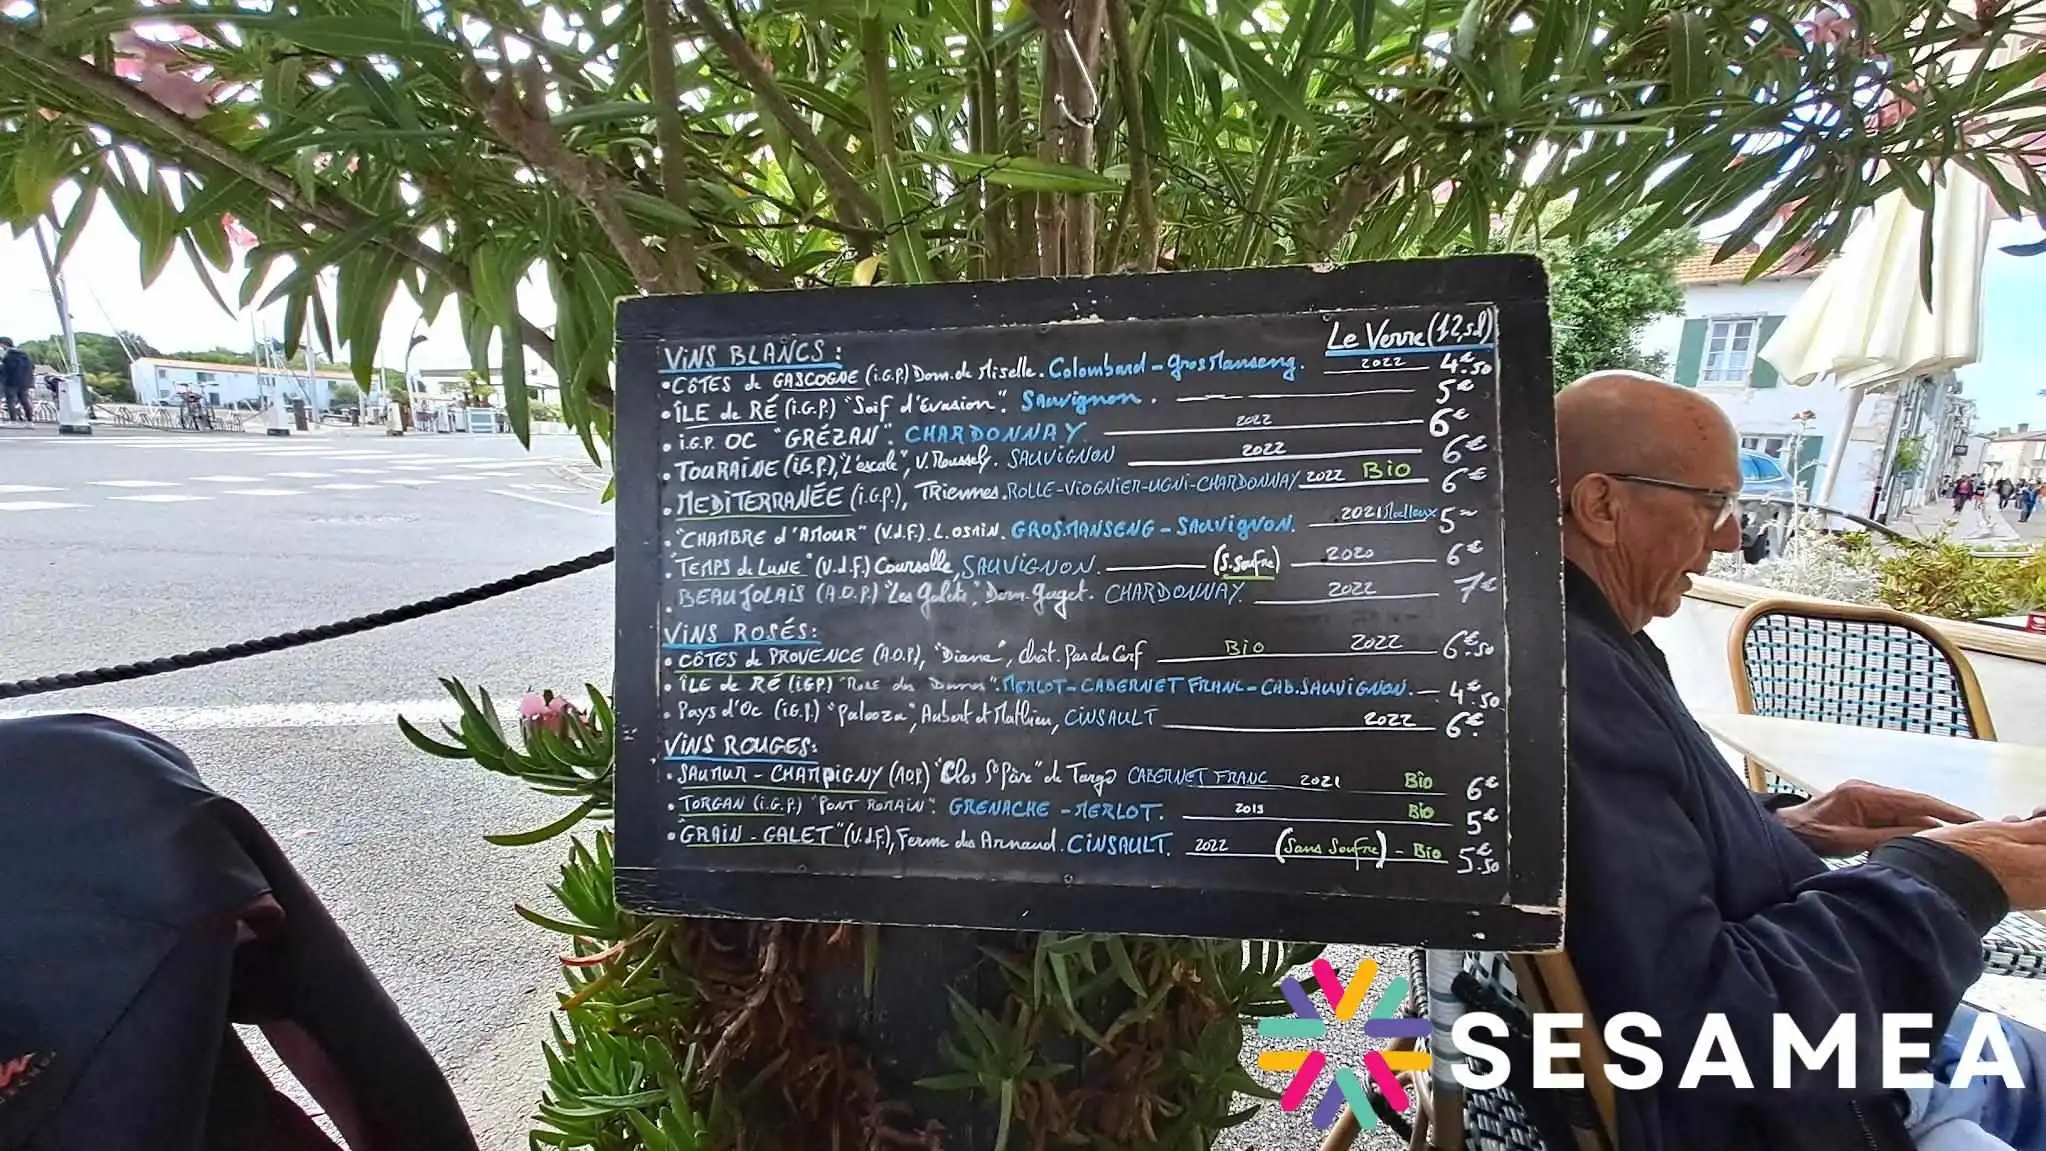 Le Verre (12,5cl)
ViNS BLANCS :
• CÔTES de GASCOGNE (i.G.P.) Dom. de Miselle. Colombard - Gros Manseng. 2022 4€.50
• ÎLE de RÉ (i.G.P.) "Soif d'Evasion". Sauvignon. 5€
• i.G.P. OC "GRÉZAN". CHARDONNAY 2022 6€
• TOURAINE (i.G.P.), "L'escale", V. Roussely. SAUVIGNON 2022 6€
• MEDITERRANÉE (i.G.P.), Triennes. ROLLE-ViOGNiER-UGNi-CHARDONNAY 2022 BiO 6€
• "CHAMBRE d'AMOUR" (V.d.F.). L. OSMiN. GROSMANSENG - SAUViGNON. 2021 Moelleux 5€
• "TEMPS de LUNE" (V.d.F.) Courselle, SAUViGNON. (S. Soufre) 2020 6€
• BEAUJOLAIS (A.O.P.) "Les Galets", Dom. Guget. CHARDONNAY. 2022 7€
ViNS ROSÉS :
• CÔTES de PROVENCE (A.O.P.), "Diane", chât. Pas du Cerf BiO 2022 6€.50
• ÎLE de RÉ (iGP) "Rosé des Dunes". MERLOT-CABERNET FRANC-CAB.SAUViGNON. 4€.50
• Pays d'Oc (i.G.P.) "Palooza", Aubert et Mathieu, CiNSAULT 2022 6€.
ViNS ROUGES :
• SAUMUR - CHAMPIGNY (A.O.P.) "Clos St Père" de Targé CABERNET FRANC 2021 Bio 6€
• TORGAN (i.G.P.) "PONT ROMAiN". GRENACHE - MERLOT. 2019 Bio 5€
• "GRAiN - GALET" (V.d.F.), Ferme des Arnaud. CiNSAULT. 2022 (Sans Soufre) - Bio 5€.50
SESAMEA